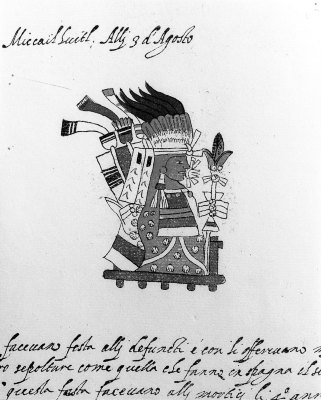 Miccailhuitl: Allj 3 d'Agosto
facevano festa allj defuncti é con li offerivano
ro sepolture come quella che fanno in spagna il
questa festa facevano allj mortj